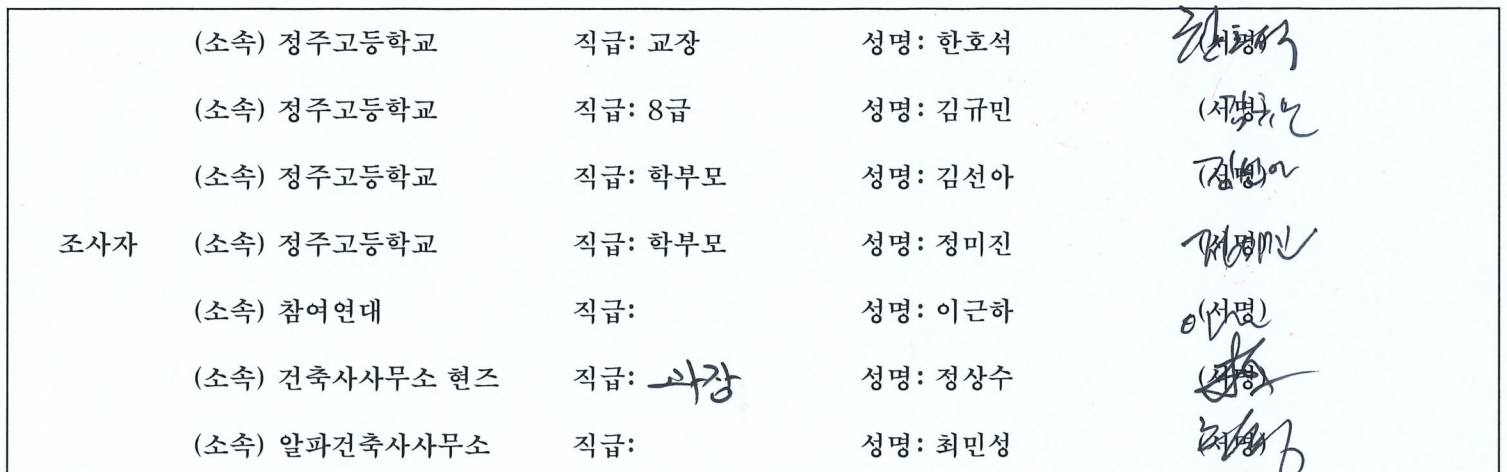 (소속) 정주고등학교 직급: 교장 성명: 한호석 (서명)
(소속) 정주고등학교 직급: 8급 성명: 김규민 (서명)
(소속) 정주고등학교 직급: 학부모 성명: 김선아 (서명)
조사자 (소속) 정주고등학교 직급: 학부모 성명: 정미진 (서명)
(소속) 참여연대 직급: 성명: 이근하 (서명)
(소속) 건축사사무소 현즈 직급: 과장 성명: 정상수 (서명)
(소속) 알파건축사사무소 직급: 성명: 최민성 (서명)